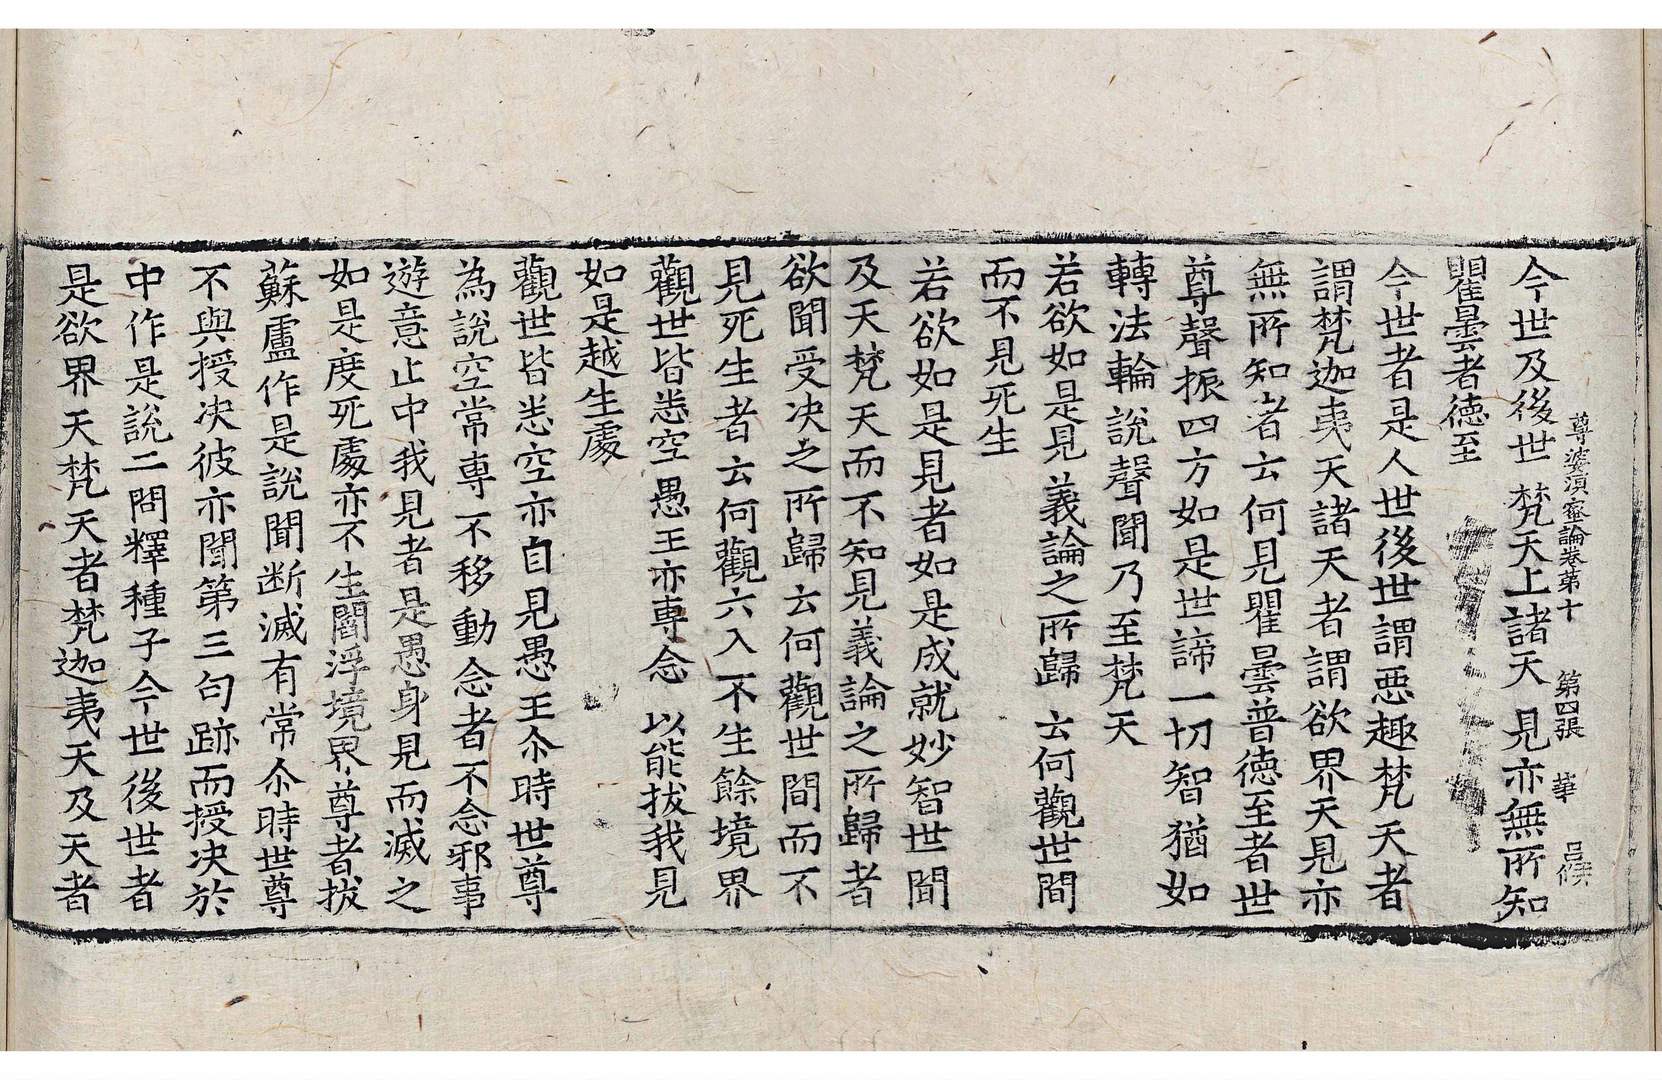 尊婆湏蜜論卷第十　第四張　華　呂俟
今世及後世　梵天上諸天　見亦無所知
瞿曇者德至
今世者是人世後世謂惡趣梵天者
謂梵迦夷天諸天者謂欲界天見亦
無所知者云何見瞿曇普德至者世
尊聲振四方如是世諦一切智猶如
轉法輪說聲聞乃至梵天
若欲如是見　義論之所歸　云何觀世間
而不見死生
若欲如是見者如是成就妙智世間
及天梵天而不知見義論之所歸者
欲聞受决之所歸云何觀世間而不
見死生者云何觀六入不生餘境界
觀世皆悉空　愚王亦專念　以能拔我見
如是越生處
觀世皆悉空亦自見愚王尒時世尊
為說空常專不移動念者不念邪事
遊意止中我見者是愚身見而滅之
如是度死處亦不生閻浮境界尊者拔
蘇盧作是說聞断滅有常尒時世尊
不與授决彼亦聞第三句跡而授决於
中作是說二問釋種子今世後世者
是欲界天梵天者梵迦夷天及天者